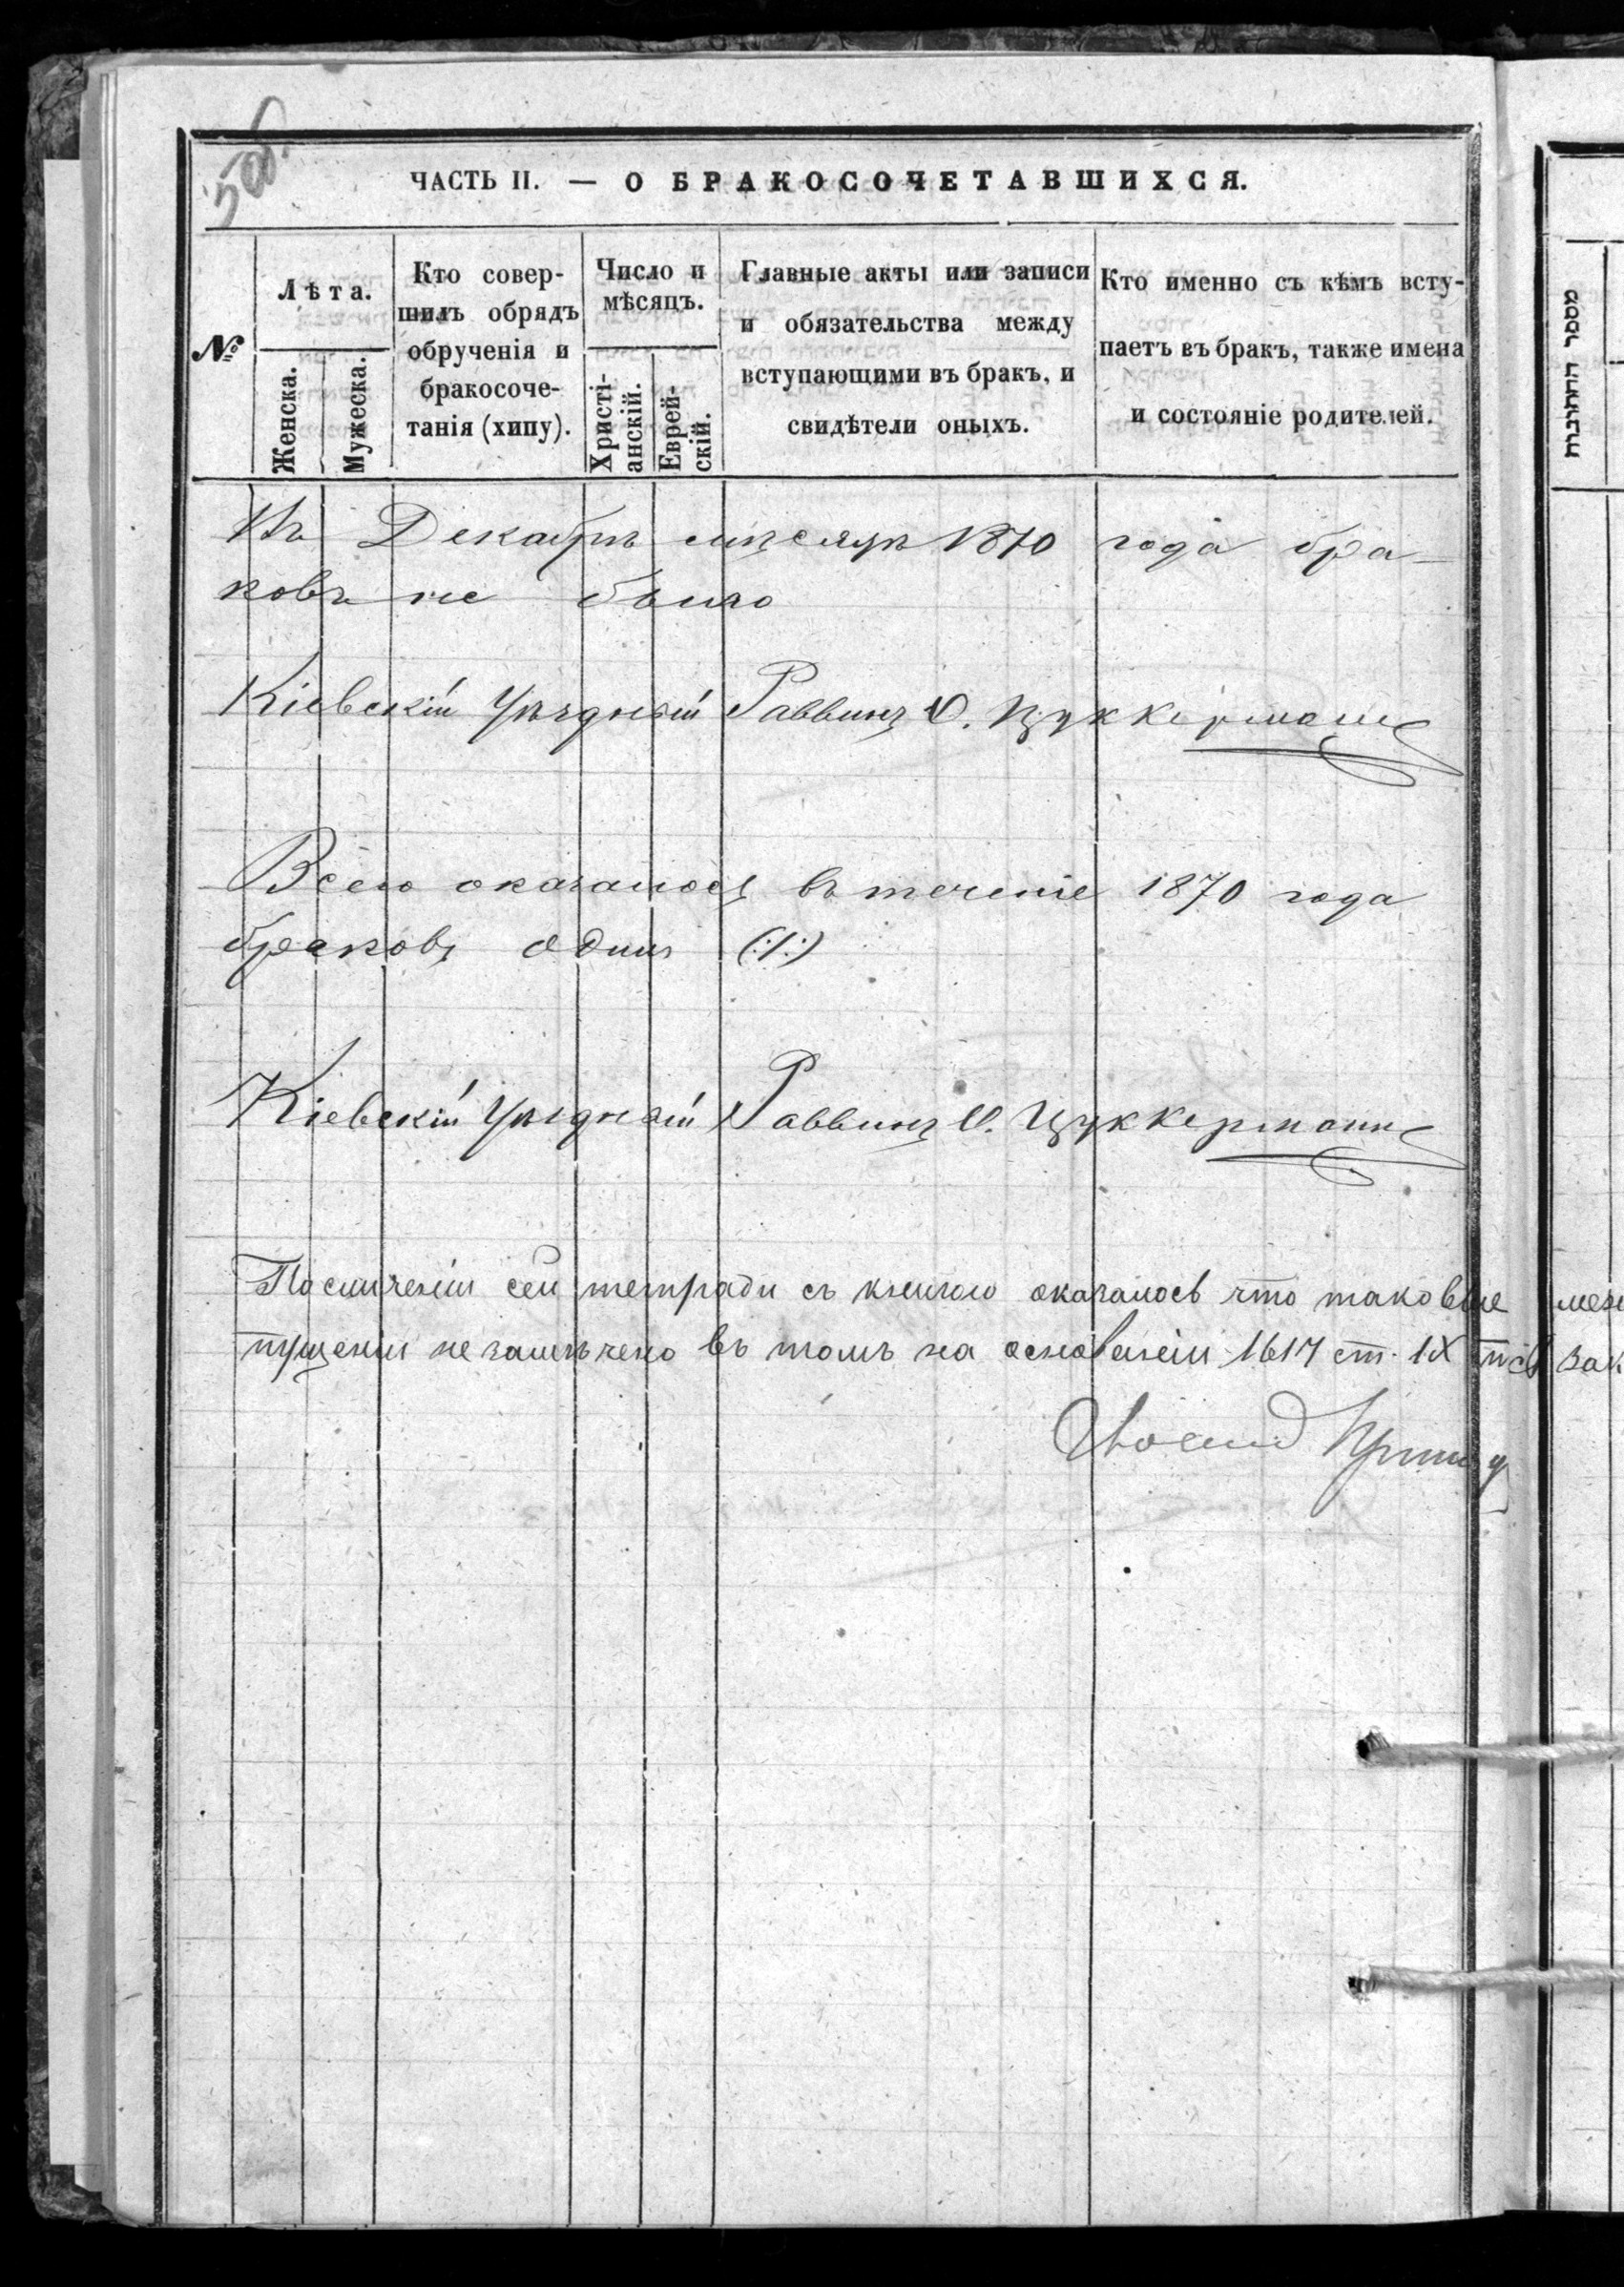 50об.
ЧАСТЬ II. — О БРАКОСОЧЕТАВШИХСЯ.
№
Лѣта.
Женска.
Мужеска.
Кто совер-
шилъ обрядъ
обрученія и
бракосоче-
танія (хипу).
Число и
мѣсяцъ.
Христі-
анскій.
Еврей-
скій.
Главные акты или записи
и обязательства между
вступающими въ бракъ, и
свидѣтели оныхъ.
Кто именно съ кѣмъ всту-
паетъ въ бракъ, также имена
и состояніе родителей.
מספר החתונות
Въ Декабрѣ мѣсяцѣ 1870 года бра-
ковъ не было
Кіевскій Уѣздный Раввинъ О. Цуккерманъ
Всего оказалось въ теченіе 1870 года
браковъ одинъ (:1:)
Кіевскій Уѣздный Раввинъ О. Цуккерманъ
По сличеніи сей тетради съ книгою оказалось что таковые
пущенія не замѣчено въ томъ на основаніи 1617 ст. IX т. св зак